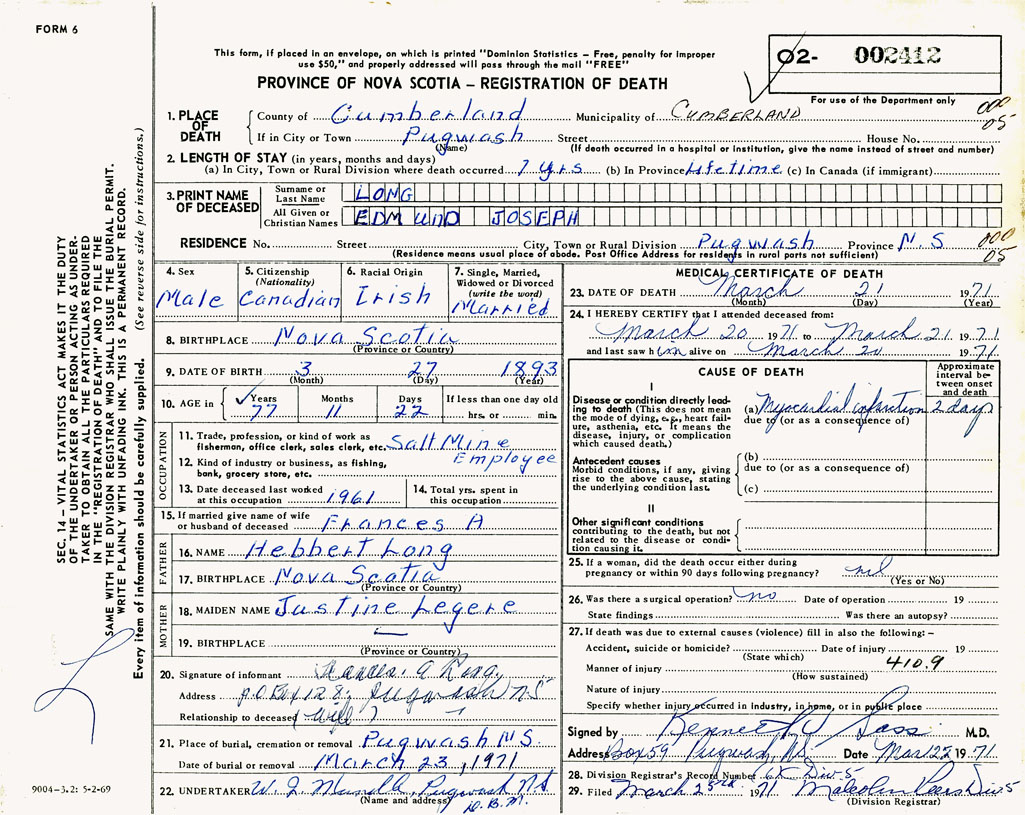 FORM 6
This form, if placed in an envelope, on which is printed "Dominion Statistics – Free, penalty for improper
use $50," and properly addressed will pass through the mail "FREE"
O2- 002412
For use of the Department only
PROVINCE OF NOVA SCOTIA – REGISTRATION OF DEATH
1. PLACE OF DEATH
County of Cumberland Municipality of CUMBERLAND 000
If in City or Town Pugwash Street House No. 05
(Name) (If death occurred in a hospital or institution, give the name instead of street and number)
2. LENGTH OF STAY (in years, months and days)
(a) In City, Town or Rural Division where death occurred 7 yrs (b) In Province lifetime (c) In Canada (if immigrant)
3. PRINT NAME OF DECEASED
Surname or Last Name LONG
All Given or Christian Names EDMUND JOSEPH
RESIDENCE No. Street City, Town or Rural Division Pugwash Province N.S 000
(Residence means usual place of abode. Post Office Address for residents in rural parts not sufficient) 05
4. Sex Male
5. Citizenship (Nationality) Canadian
6. Racial Origin Irish
7. Single, Married, Widowed or Divorced (write the word) Married
8. BIRTHPLACE Nova Scotia
(Province or Country)
9. DATE OF BIRTH 3 27 1893
(Month) (Day) (Year)
10. AGE in Years 77 Months 11 Days 22 If less than one day old
hrs. or min.
OCCUPATION
11. Trade, profession, or kind of work as
fisherman, office clerk, sales clerk, etc. Salt Mine
Employee
12. Kind of industry or business, as fishing,
bank, grocery store, etc.
13. Date deceased last worked
at this occupation 1961
14. Total yrs. spent in
this occupation
15. If married give name of wife
or husband of deceased Frances A
FATHER
16. NAME Hebbert Long
17. BIRTHPLACE Nova Scotia
(Province or Country)
MOTHER
18. MAIDEN NAME Justine Legere
19. BIRTHPLACE —
(Province or Country)
20. Signature of informant Frances A Long
Address P.O Box 128, Pugwash NS
Relationship to deceased (Wife)
21. Place of burial, cremation or removal Pugwash N S.
Date of burial or removal March 23, 1971
22. UNDERTAKER W. J. Pugwash N.S
(Name and address) D.B.M.
MEDICAL CERTIFICATE OF DEATH
23. DATE OF DEATH March 21 1971
(Month) (Day) (Year)
24. I HEREBY CERTIFY that I attended deceased from:
March 20 1971 to March 21 1971
and last saw him alive on March 20 1971
CAUSE OF DEATH
Approximate interval between onset and death
I
Disease or condition directly leading to death (This does not mean the mode of dying, e.g., heart failure, asthenia, etc. It means the disease, injury, or complication which caused death.)
(a) Myocardial infarction 2 days
due to (or as a consequence of)
Antecedent causes
Morbid conditions, if any, giving rise to the above cause, stating the underlying condition last.
(b)
due to (or as a consequence of)
(c)
II
Other significant conditions
contributing to the death, but not related to the disease or condition causing it.
25. If a woman, did the death occur either during
pregnancy or within 90 days following pregnancy? nil
(Yes or No)
26. Was there a surgical operation? no Date of operation 19
State findings Was there an autopsy?
27. If death was due to external causes (violence) fill in also the following: –
Accident, suicide or homicide? Date of injury 19
(State which)
Manner of injury 410.9
(How sustained)
Nature of injury
Specify whether injury occurred in industry, in home, or in public place
Signed by Kenneth M.D.
Address Box 59 Pugwash, N.S. Date Mar 22 1971
28. Division Registrar's Record Number Div 5
29. Filed March 25th 1971 Malcolm Div 5
(Division Registrar)
SEC. 14 – VITAL STATISTICS ACT MAKES IT THE DUTY
OF THE UNDERTAKER OR PERSON ACTING AS UNDER-
TAKER TO OBTAIN ALL THE PARTICULARS REQUIRED
IN THE "REGISTRATION OF DEATH" AND TO FILE THE
SAME WITH THE DIVISION REGISTRAR WHO SHALL ISSUE THE BURIAL PERMIT.
WRITE PLAINLY WITH UNFADING INK. THIS IS A PERMANENT RECORD.
Every item of information should be carefully supplied. (See reverse side for instructions.)
9004-3.2: 5-2-69